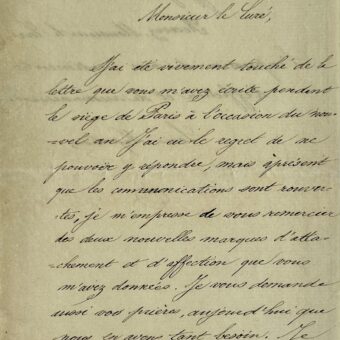 Monsieur le Curé,
J'ai été vivement touché de la
lettre que vous m'avez écrite pendant
le siège de Paris à l'occasion du nou-
vel an. J'ai eu le regret de ne
pouvoir y répondre, mais àprésent
que les communications sont rouver-
tes, je m'empresse de vous remercier
des deux nouvelles marques d'atta-
chement et d'affection que vous
m'avez données. Je vous demande
aussi vos prières, aujourd'hui que
nous en avons tant besoin. Je